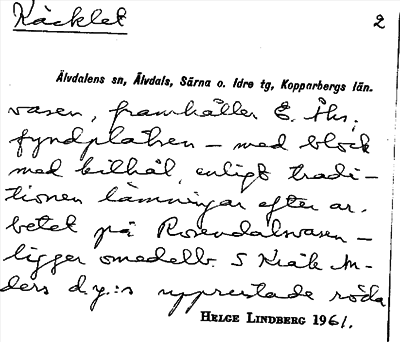 Käcklet
2
Älvdalens sn, Älvdals, Särna o. Idre tg, Kopparbergs län.
vasen, framhåller E. Åhs;
fyndplatsen – med block
med kilhål, enligt tradi-
tionen lämningar efter ar.
betet på Rosendalsvasen –
ligger omedelb. S Kråk An-
ders d.y.:s upprestade röda
HELGE LINDBERG 1961.